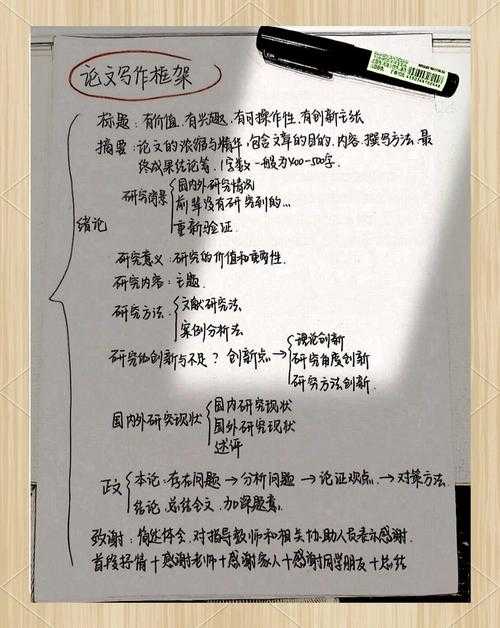 论文写作框架
标题：有价值.有兴趣.有可操作性.有创新主张
摘要：论文的浓缩与精华,包含文章的目的.内容.撰写方法.最
终成果结论等.1字数一般为400-500字.
绪论
研究背景
国内外研究情况
前辈没有研究到的...
重新验证.
研究意义：研究的价值和重要性.
研究内容：主题.
研究方法.
文献研究法
案例分析法
研究的创新与不足？创新点→
理论创新
研究角度创新
研究方法创新.
国内外研究现状
国内研究现状
国外研究现状
述评
正文
本论：存在问题→分析问题→论证观点→对策方法.
结论.总结全文.加深题意.
致谢：简述体会.对指导教师和相关协助人员表示感谢.
首段抒情+感谢老师+感谢家人+感谢同学朋友+总结